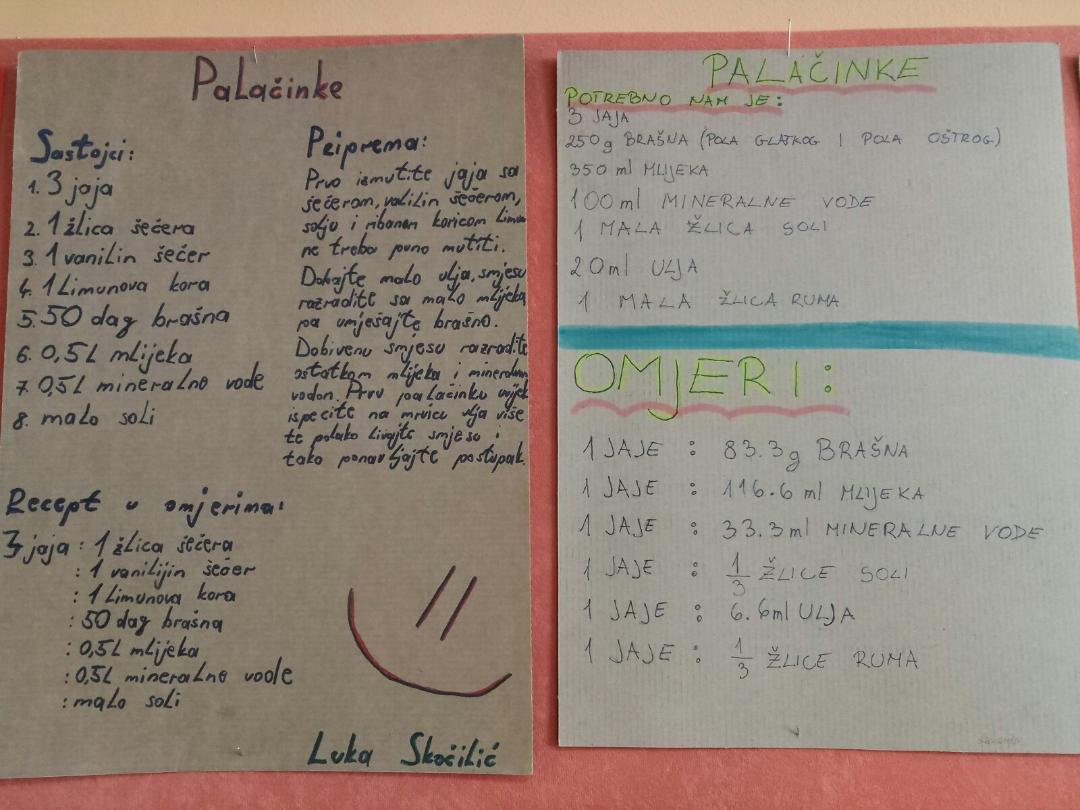 Palačinke
Sastojci:
1. 3 jaja
2. 1 žlica šećera
3. 1 vanilin šećer
4. 1 Limunova kora
5. 50 dag brašna
6. 0,5L mlijeka
7. 0,5L mineralne vode
8. malo soli
Peiprema:
Prvo izmutite jaja sa
šećerom, valilin šećerom,
solju i ribanom koricom limun
ne treba puno mutiti.
Dodajte malo ulja, smjesu
razradite sa malo mlijeka
pa umješajte brašno.
Dobivenu smjesu razradite
ostatkom mlijeka i mineralnom
vodon. Prvu palačinku uvijek
ispecite na mrvicu ulja više
te polako livajte smjesu i
tako ponavljajte postupak.
Recept u omjerima:
3 jaja : 1 žlica šećera
: 1 vanilijin šećer
: 1 limunova kora
: 50 dag brašna
: 0,5L mlijeka
: 0,5L mineralne vode
: malo soli
Luka Skočilić
PALAČINKE
POTREBNO NAM JE:
3 JAJA
250g BRAŠNA (POLA GLATKOG I POLA OŠTROG)
350 ml MLIJEKA
100 ml MINERALNE VODE
1 MALA ŽLICA SOLI
20ml ULJA
1 MALA ŽLICA RUMA
OMJERI:
1 JAJE : 83.3g BRAŠNA
1 JAJE : 116.6 ml MLIJEKA
1 JAJE : 33.3ml MINERALNE VODE
1 JAJE : 1/3 ŽLICE SOLI
1 JAJE : 6.6ml ULJA
1 JAJE : 1/3 ŽLICE RUMA